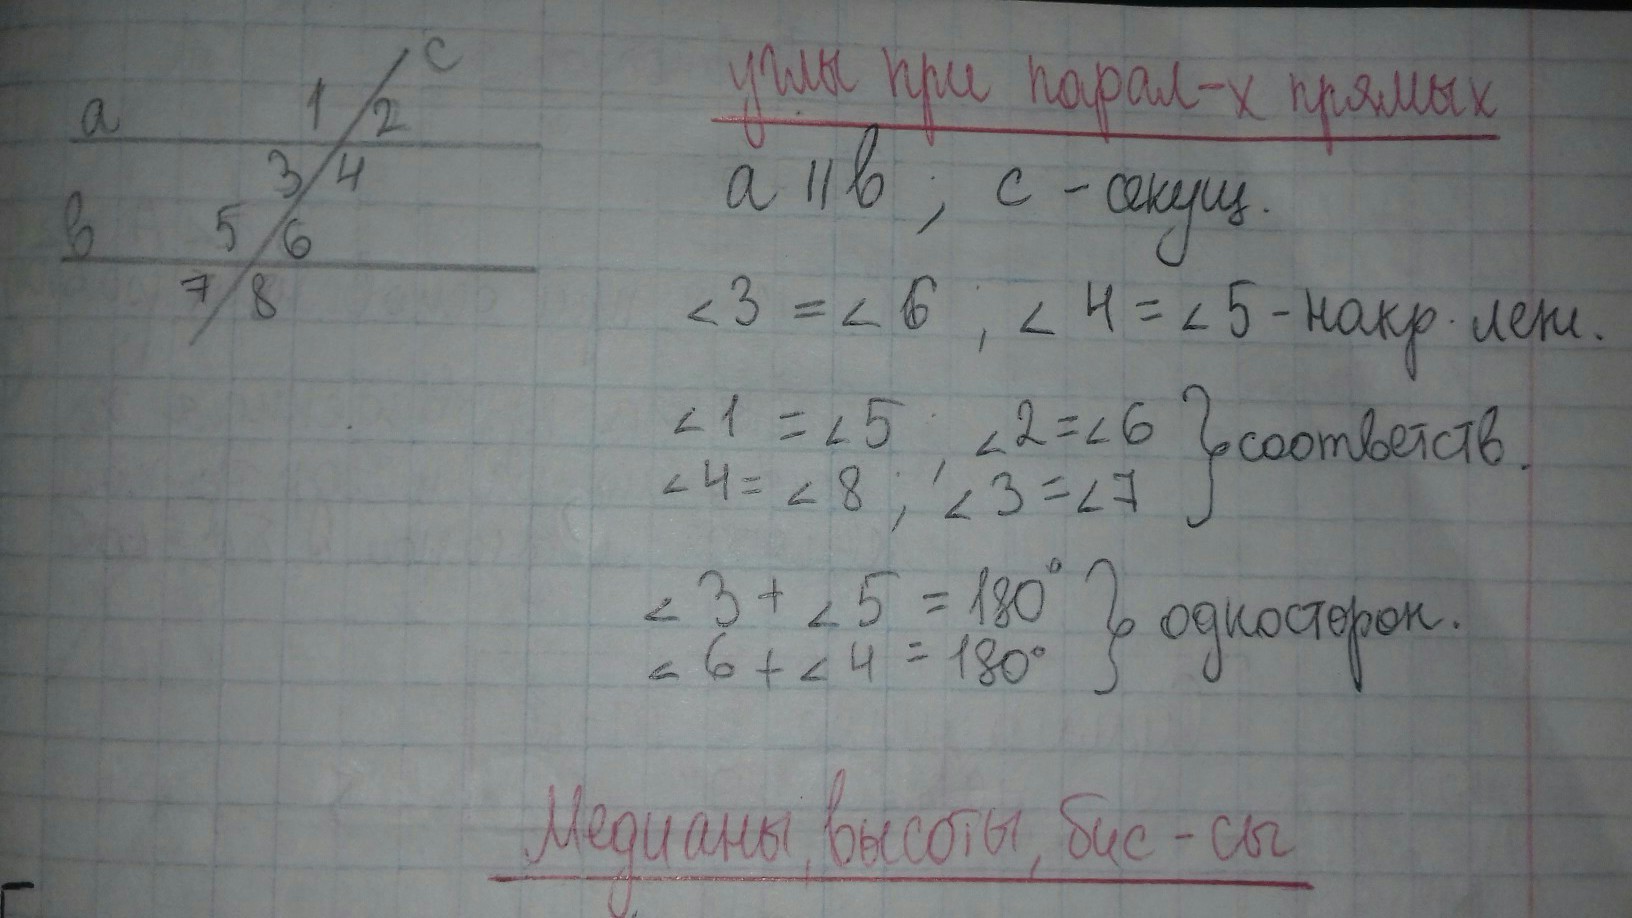 c
a 1 2
3 4
в 5 6
7 8
углы при парал-х прямых
a || в ; c - секущ.
∠3 = ∠6 ; ∠4 = ∠5 - накр. леж.
∠1 = ∠5 ; ∠2 = ∠6 } соответств.
∠4 = ∠8 ; ∠3 = ∠7
∠3 + ∠5 = 180° } односторон.
∠6 + ∠4 = 180°
Медианы, высоты, бис-сы